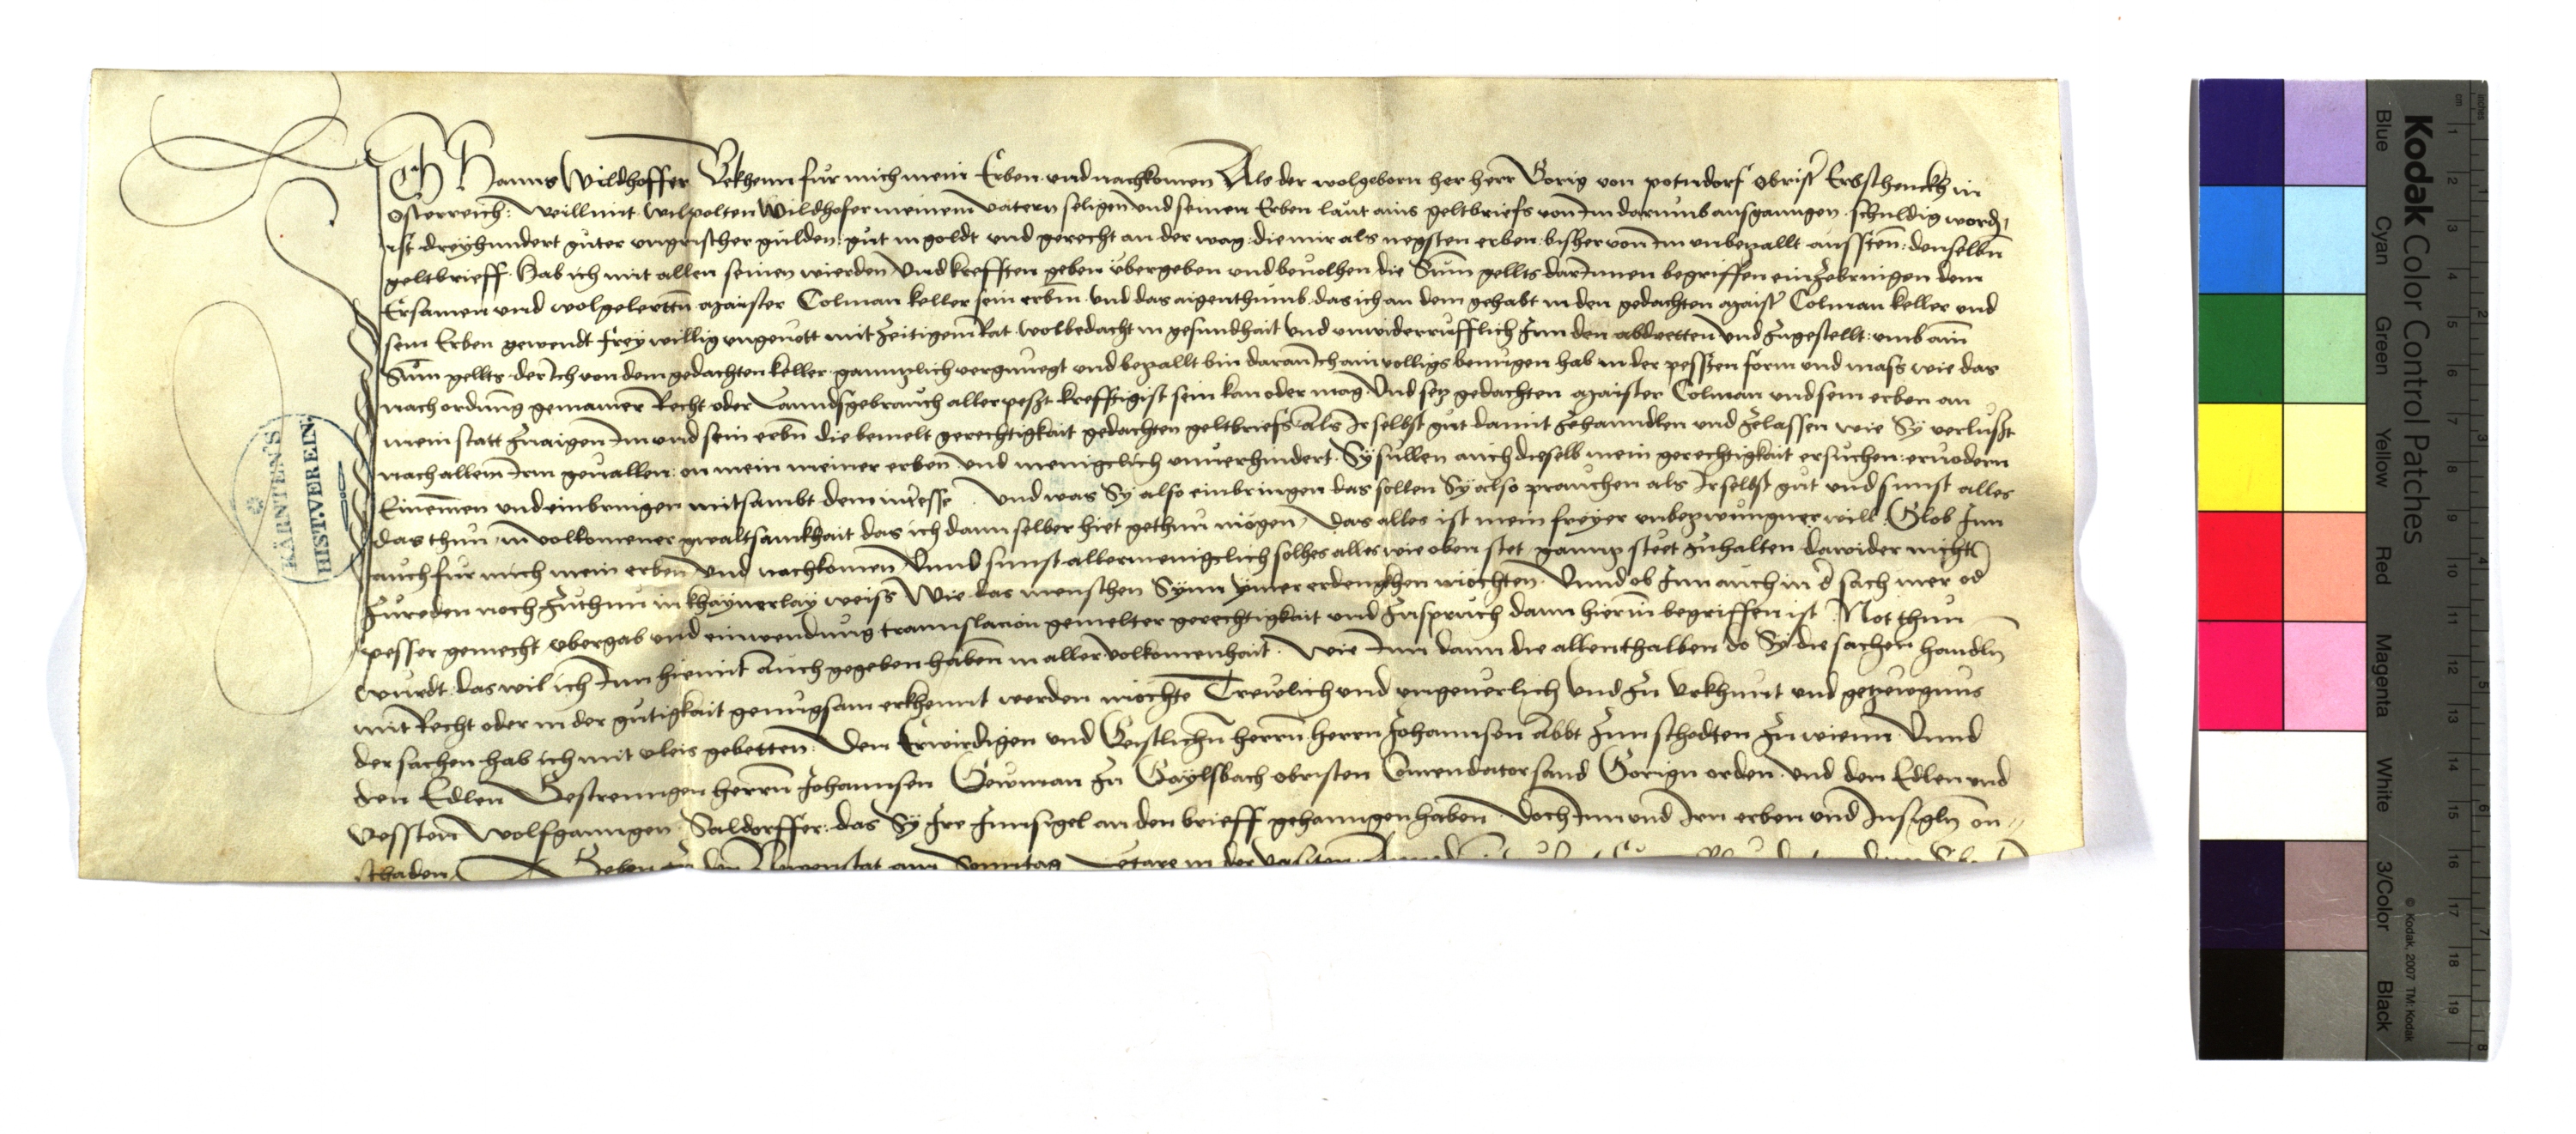 Ich Hanns Wildhoffer Bekhenn fur mich mein Erben vnd nachkomen Als der wolgeborn her herr Gorig von potndorf Obrist Erbschenckh in
Osterreich: weillent wilpolten Wildhofer meinem vatern seligen vnd seinen Erben laut ains geltbriefs von Im darumb ausgangen schuldig worden
ist dreyhundert guter vngrischer gulden: gut in goldt vnd gerecht an der wag: die mir als negsten erben bisher von Im vnbezallt aussten: denselbn
geltbrieff. Hab ich mit allen seinen wierden vnd krefften geben vbergeben vnd beuolhen die Sum gellts darInnen begriffen einzebringen dem
Ersamen vnd wolgelertten maister Colman keller sein erbm vnd das aigenthumb das ich an dem gehabt in den gedachten maister Colman keller vnd
sein Erben gewendt freywillig vngenott mit zeitigem Rat wolbedacht in gesundhait vnd vnwiderrufflich Inn den abdretten vnd zugestellt: vmb ain
Sum gellts der Ich von dem gedachten keller gannzlich vergnuegt vnd bezallt bin daran Ich ain volligs benugen hab in der pessten form vnd mass wie das
nach ordnung gemainer Recht oder Lanndsgebrauch aller pesst krefftigist sein kan oder mag Vnd sez gedachten maister Colman vnd sein erben an
mein statt zuaigen Im vnd sein erbn die bemelt gerechtigkait gedachten geltbriefs Als Ir selbst gut damit zehanndlen vnd zelassen wie Sy verlusst
nach allem Irm geuallen: on mein meiner erben vnd menigclich vnuerhindert. Sy sullen auch dieselb mein gerechtigkait ersuchen: eruodern
Einemen vnd einbringen mitsambt dem interesse. Vnd was Sy also einbringen das sollen Sy also prauchen als Ir selbst gut vnd sunst alles
das thun in volkomener gwaltsamkhait das ich dann selber hiet gethun mogen, Das alles ist mein freyer vnbezwungner will. Glob Inn
auch fur mich mein erben vnd nachkomen Vnnd sunst allermenigclich solhes alles wie oben stet gannz steet zuhalten dawider nicht
zureden noch zuthun in khaynerlay weiss Wie das menschen Synn ymer erdengkhen mochten. Vnnd ob Inn auch in der sach mer oder
pesser gemecht vbergab vnd einwendung trannslacion gemelter gerechtigkait vnd zuspruch dann hierin begriffen ist Not thun
wurdt. das wil ich Inn hiemit Auch gegeben haben in aller volkomenhait. wie Inn dann die allenthalben do Sy die sachen handln
mit Recht oder in der gutigkait genugsam erkhennt werden mochte Trewlich vnd vngeuerlich vnd zu vrkhunt vnd gezewgnus
der sachen hab ich mit vleis gebetten: Den Erwirdigen vnd Geistlichn herrn herrn Johannsen Abbt zun schodten zu wienn Vnnd
den Edlen Gestrenngen herrn Johannsen Gewman zu Gaylsbach obristen Comendator sand Gorign orden. vnd den Edlen vnd
vessten Wolfganngen Saldorffer: das Sy Ire Innsigel an den brieff gehanngen haben Doch Inn vnd Irn erben vnd Insigln on
schaden. Geben zu der Newenstat am Sonntag Letare in der vasten
KÄRNTEN'S
HIST. VEREIN.
Kodak Color Control Patches
Blue Cyan Green Yellow Red Magenta White 3/Color Black
© Kodak, 2007 TM: Kodak
cm 1 2 3 4 5 6 7 8 9 10 11 12 13 14 15 16 17 18 19
inches 1 2 3 4 5 6 7 8